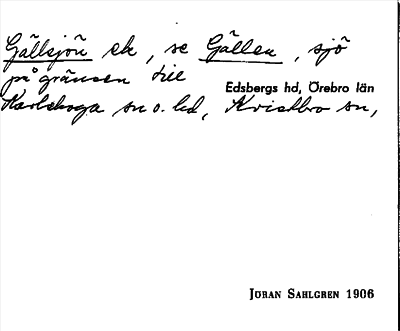 Gällsjön ek, se Gällen, sjö
på gränsen till
Edsbergs hd, Örebro län
Karlskoga sn o. hd, Kvistbro sn,
JÖRAN SAHLGREN 1906